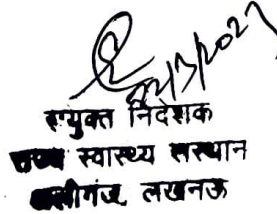 संयुक्त निदेशक
राज्य स्वास्थ्य संस्थान
अलीगंज, लखनऊ